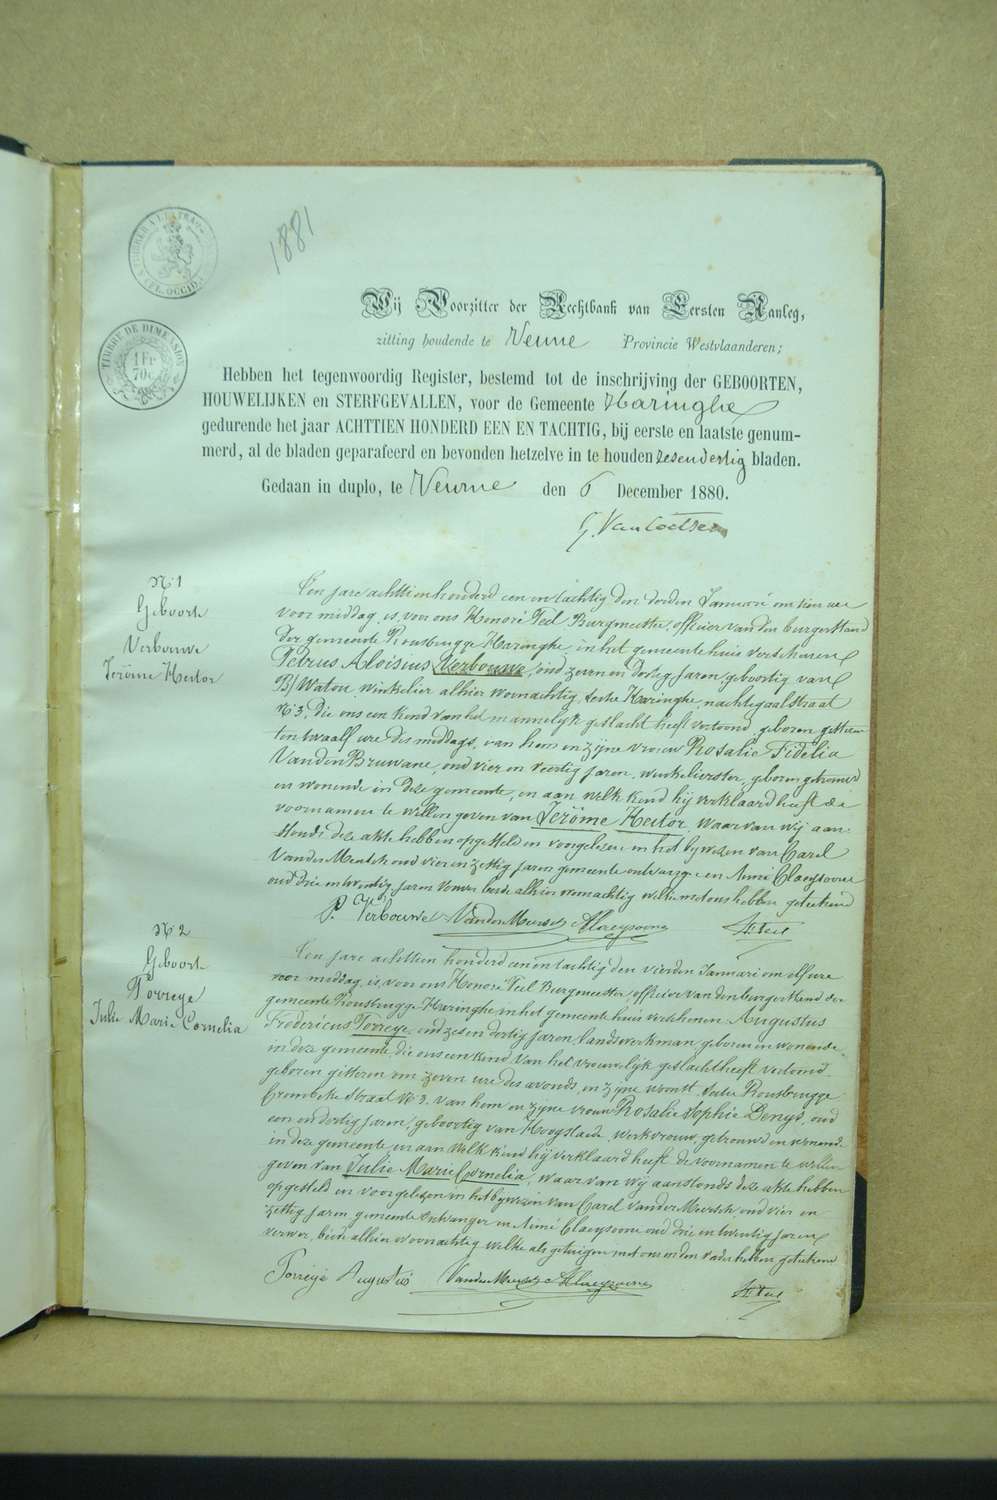 1881
TIMBRE DE DIMENSION
1 Fr
70c
Wij Voorzitter der Rechtbank van Eersten Aanleg,
zitting houdende te Veurne Provincie Westvlaanderen;
Hebben het tegenwoordig Register, bestemd tot de inschrijving der GEBOORTEN,
HOUWELIJKEN en STERFGEVALLEN, voor de Gemeente Haringhe
gedurende het jaar ACHTTIEN HONDERD EEN EN TACHTIG, bij eerste en laatste genum-
merd, al de bladen geparafeerd en bevonden hetzelve in te houden zesendertig bladen.
Gedaan in duplo, te Veurne den 6 December 1880.
N° 1
Geboorte
Verbouwe
Jérôme Hector
Een jare achttien honderd een en tachtig den derden Januari om tien ure
voor middag, is voor ons Honoré Teil Burgmeester, officier van den burgerstand
der gemeente Rousbrugge Haringhe, in het gemeentehuis verschenen
Petrus Aloisius Verbouwe, oud zeven en dertig jaren, geboortig van
B/ Watou winkelier alhier woonachtig, sectie Haringhe, nachtegaalstraat
N° 3, die ons een kind van het mannelijk geslacht heeft vertoond, geboren gisteren
ten twaalf ure des middags, van hem en zijne vrouw Rosalie Fidelia
Vanden Bruwane, oud vier en veertig jaren, winkelierster, geboren getrouwd
en wonende in deze gemeente, en aan welk kind hij verklaard heeft de
voornamen te willen geven van Jérôme Hector, waarvan wij aan-
stonds deze akte hebben opgesteld en voorgelezen in het bijwezen van Carel
Vander Meersch oud vier en zestig jaren gemeente ontvanger en Aimé Claeysoone
oud drie en twintig jaren verwer beide alhier woonachtig welke met ons hebben geteekend
P. Verbouwe Vander Meersch A Claeysoone H Teil
N° 2
Geboorte
Torreye
Julie Marie Cornelia
Een jare achttien honderd een en tachtig den vierden Januari om elf ure
voor middag, is voor ons Honoré Teil Burgmeester, officier van den burgerstand der
gemeente Rousbrugge Haringhe, in het gemeentehuis verschenen Augustus
Fredericus Torreye, oud zes en dertig jaren, landswerkman, geboren en wonende
in deze gemeente, die ons een kind van het vrouwelijk geslacht heeft vertoond
geboren gisteren om zeven ure des avonds, in zijne woonst, sectie Rousbrugge
Crombeke straat N° 3. van hem en zijne vrouw Rosalie Sophie Denys, oud
een en dertig jaren, geboortig van Hoogstaede, werkvrouw, getrouwd en wonende
in deze gemeente, en aan welk kind hij verklaard heeft de voornamen te willen
geven van Julie Marie Cornelia, waarvan wij aanstonds deze akte hebben
opgesteld en voorgelezen in het bijwezen van Carel Vander Meersch oud vier en
zestig jaren gemeente ontvanger en Aimé Claeysoone oud drie en twintig jaren
verwer, beide alhier woonachtig welke als getuigen met ons en den vader hebben geteekend
Torreye Augustus Vander Meersch A Claeysoone H Teil